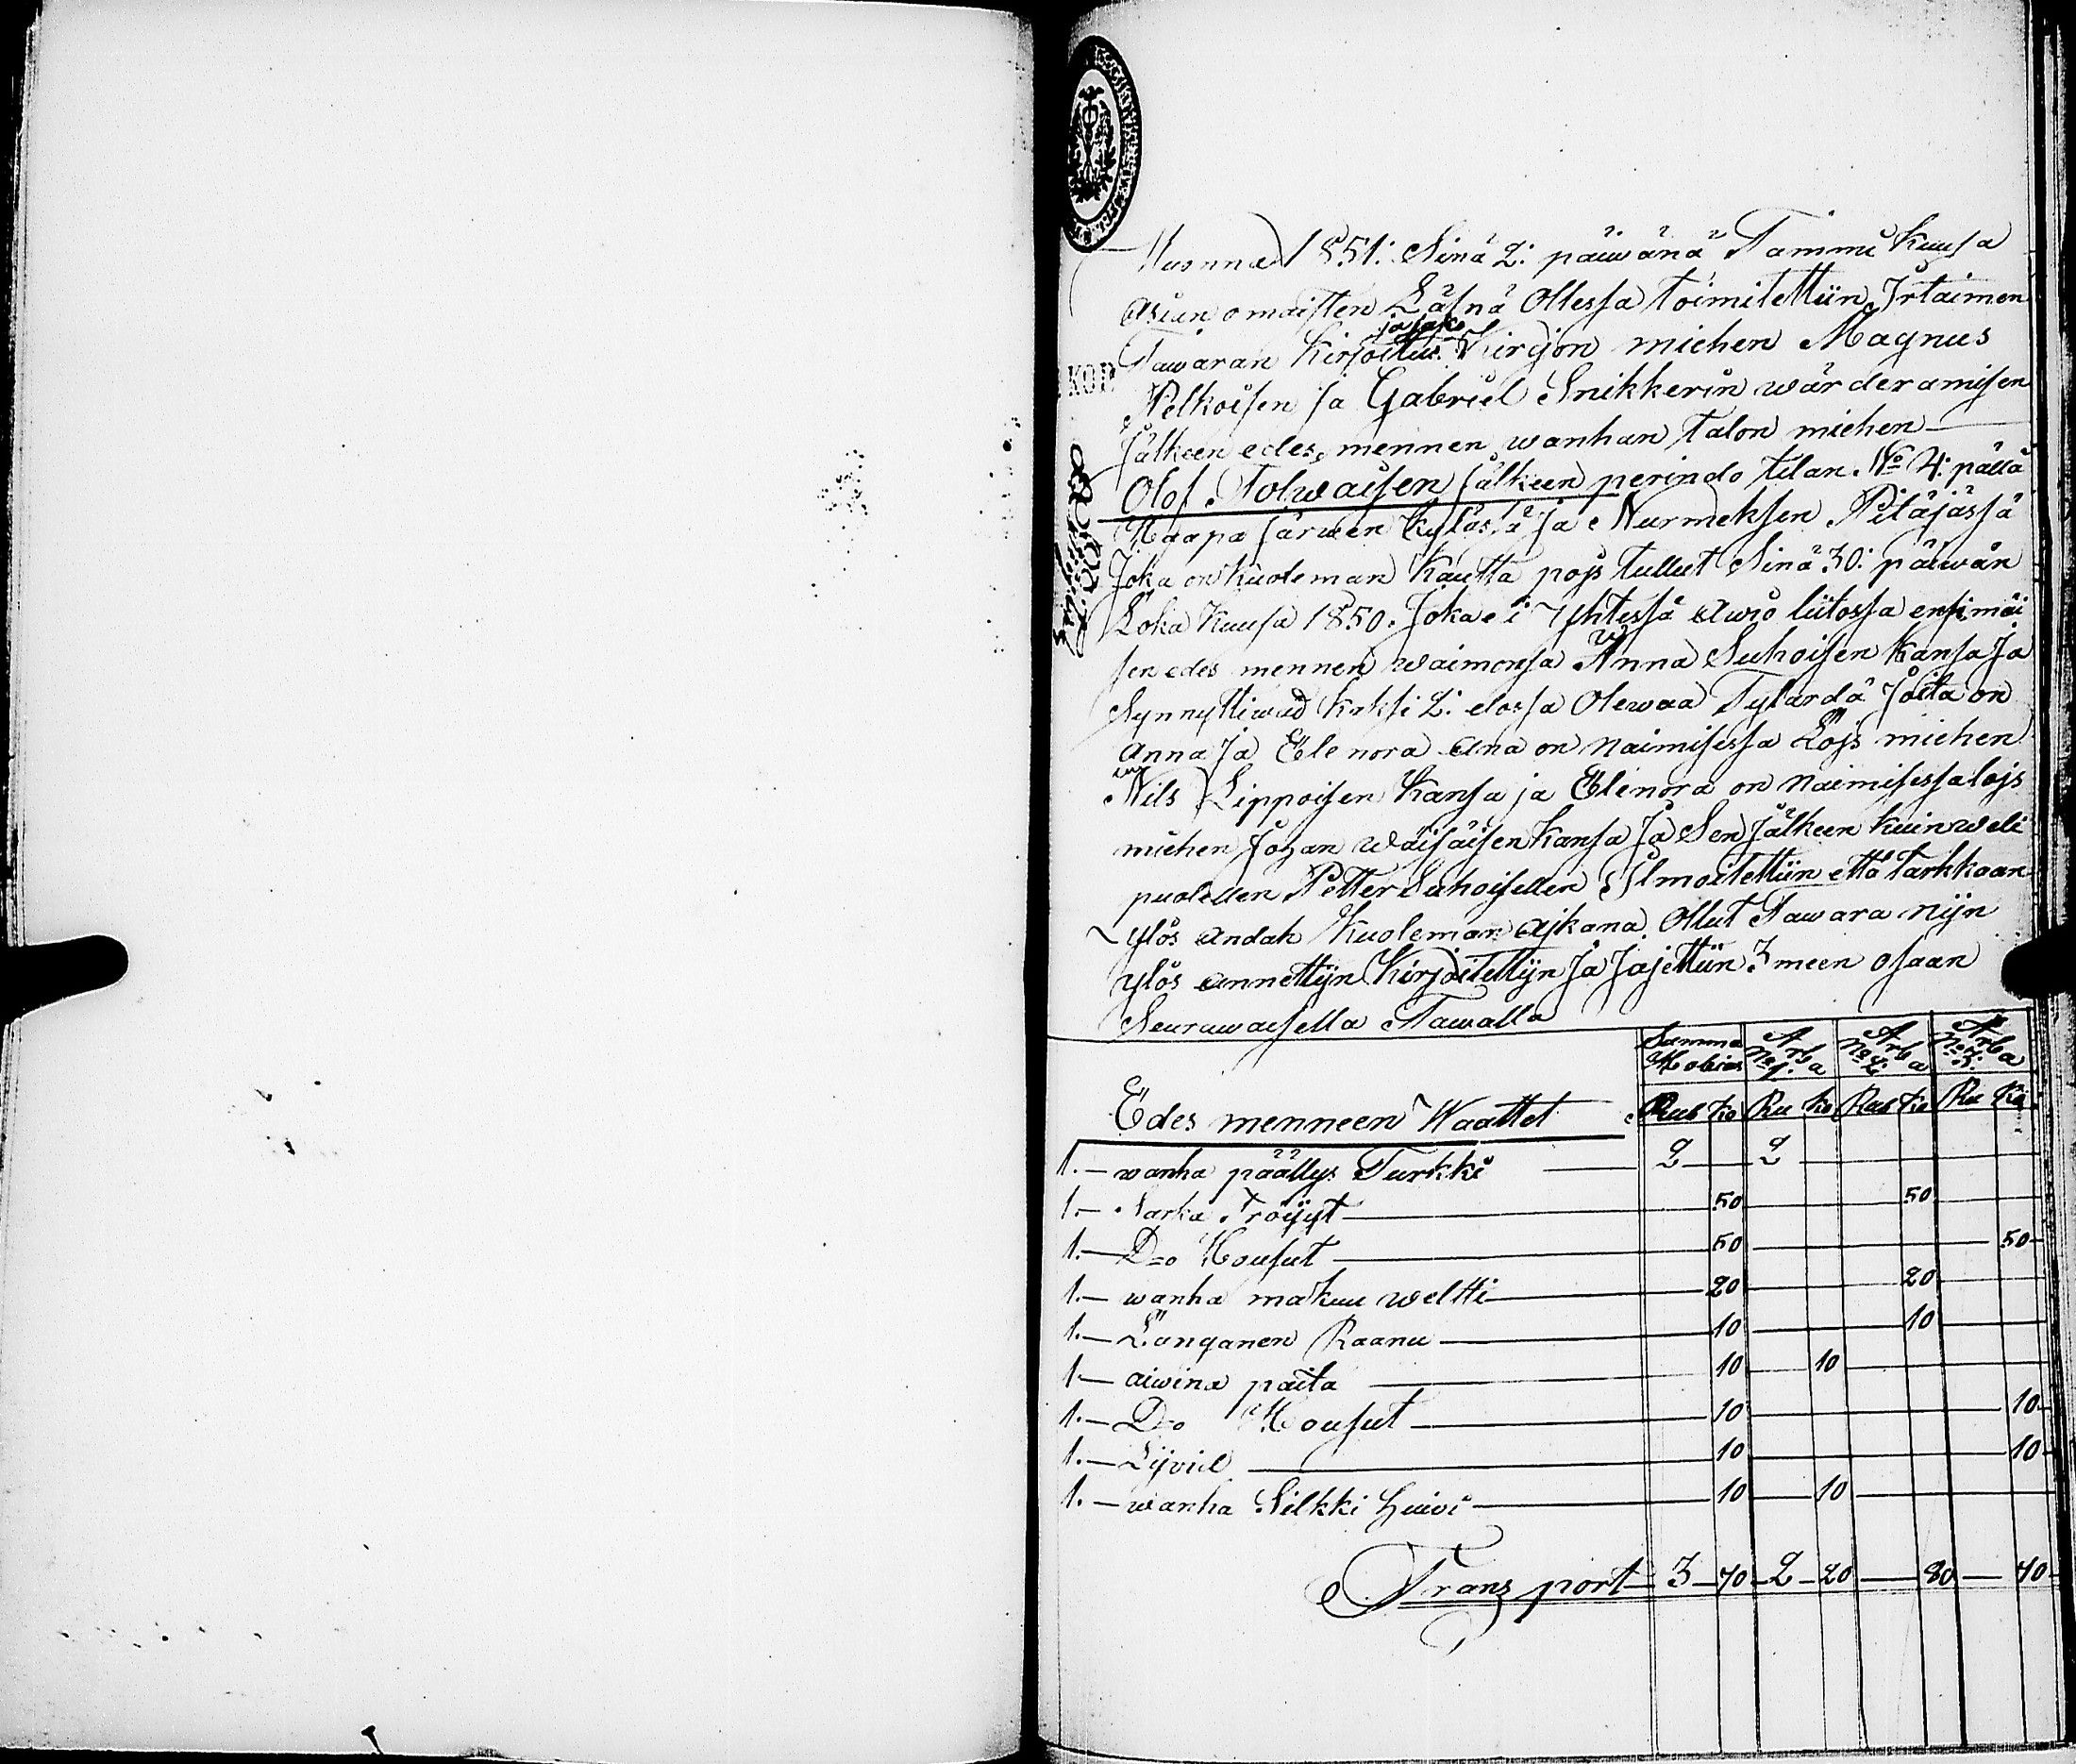 Wuonna 1851: Sinä 2: päiwänä Tammi Kuusa
asian omaisten Läsnä Ollessa toimitettiin Irtaimen
ja jako
Tawaran Kirjoitus Kirjon miehen Magnus
KOP
Pelkoisen ja Gabriel Snikkerin wärderamisen
jälkeen edes mennen wanhan talon miehen
Olof Tolwaisen jälkeen perindo tilan No 4: pällä
Haapa järwen Kylässä Ja Nurmeksen Pitäjässä
Joka on Kuoleman Kautta pojs tullut Sinä 30: päiwän
Loka Kuusa 1850. Joka ei Yhtessä awio liitossa ensimäi
sen edes mennen waimonsa Anna Suhoisen Kansa Ja
Synnyttiwäd Kaksi 2: elossa Olewaa Tytärdä Joita on
anna Ja Elenora ana on Naimisessa Lojs miehen
Nils Lippoisen Kansa ja Elenora on Naimisessa lojs
miehen Johan Wäisäisen Kansa Ja Sen Jälkeen kuin weli
puolellen Petter Suhoisellen Ilmoitettiin että tarkkaan
ylös andah Kuoleman ajkana Ollut Tawara nijn
ylös annettijn Kirjoitettijn Ja Jajettiin 3 meen osaan
Seurawaisella Tawalla
Summa Arba Arba Arba
No 1: No 2: No 3:
Edes menneen Waattet Rub Ko Ru Ko Rub Ko Ru Ko
1. — wanha päällys Turkki — 2 — 2
1. — Sarka Tröijyt — 50 — 50
1. — D=o Housut — 50 — 50
1. — wanha makuu weltti — 20 — 20
1. — Langanen Raanu — 10 — 10
1 — aiwina paita — 10 — 10
1. — D=o Housut — 10 — 10
1. — Lijvil — 10 — 10
1. — wanha Silkki huivi — 10 — 10
Transport 3 — 70 — 2 — 20 — 80 — 70